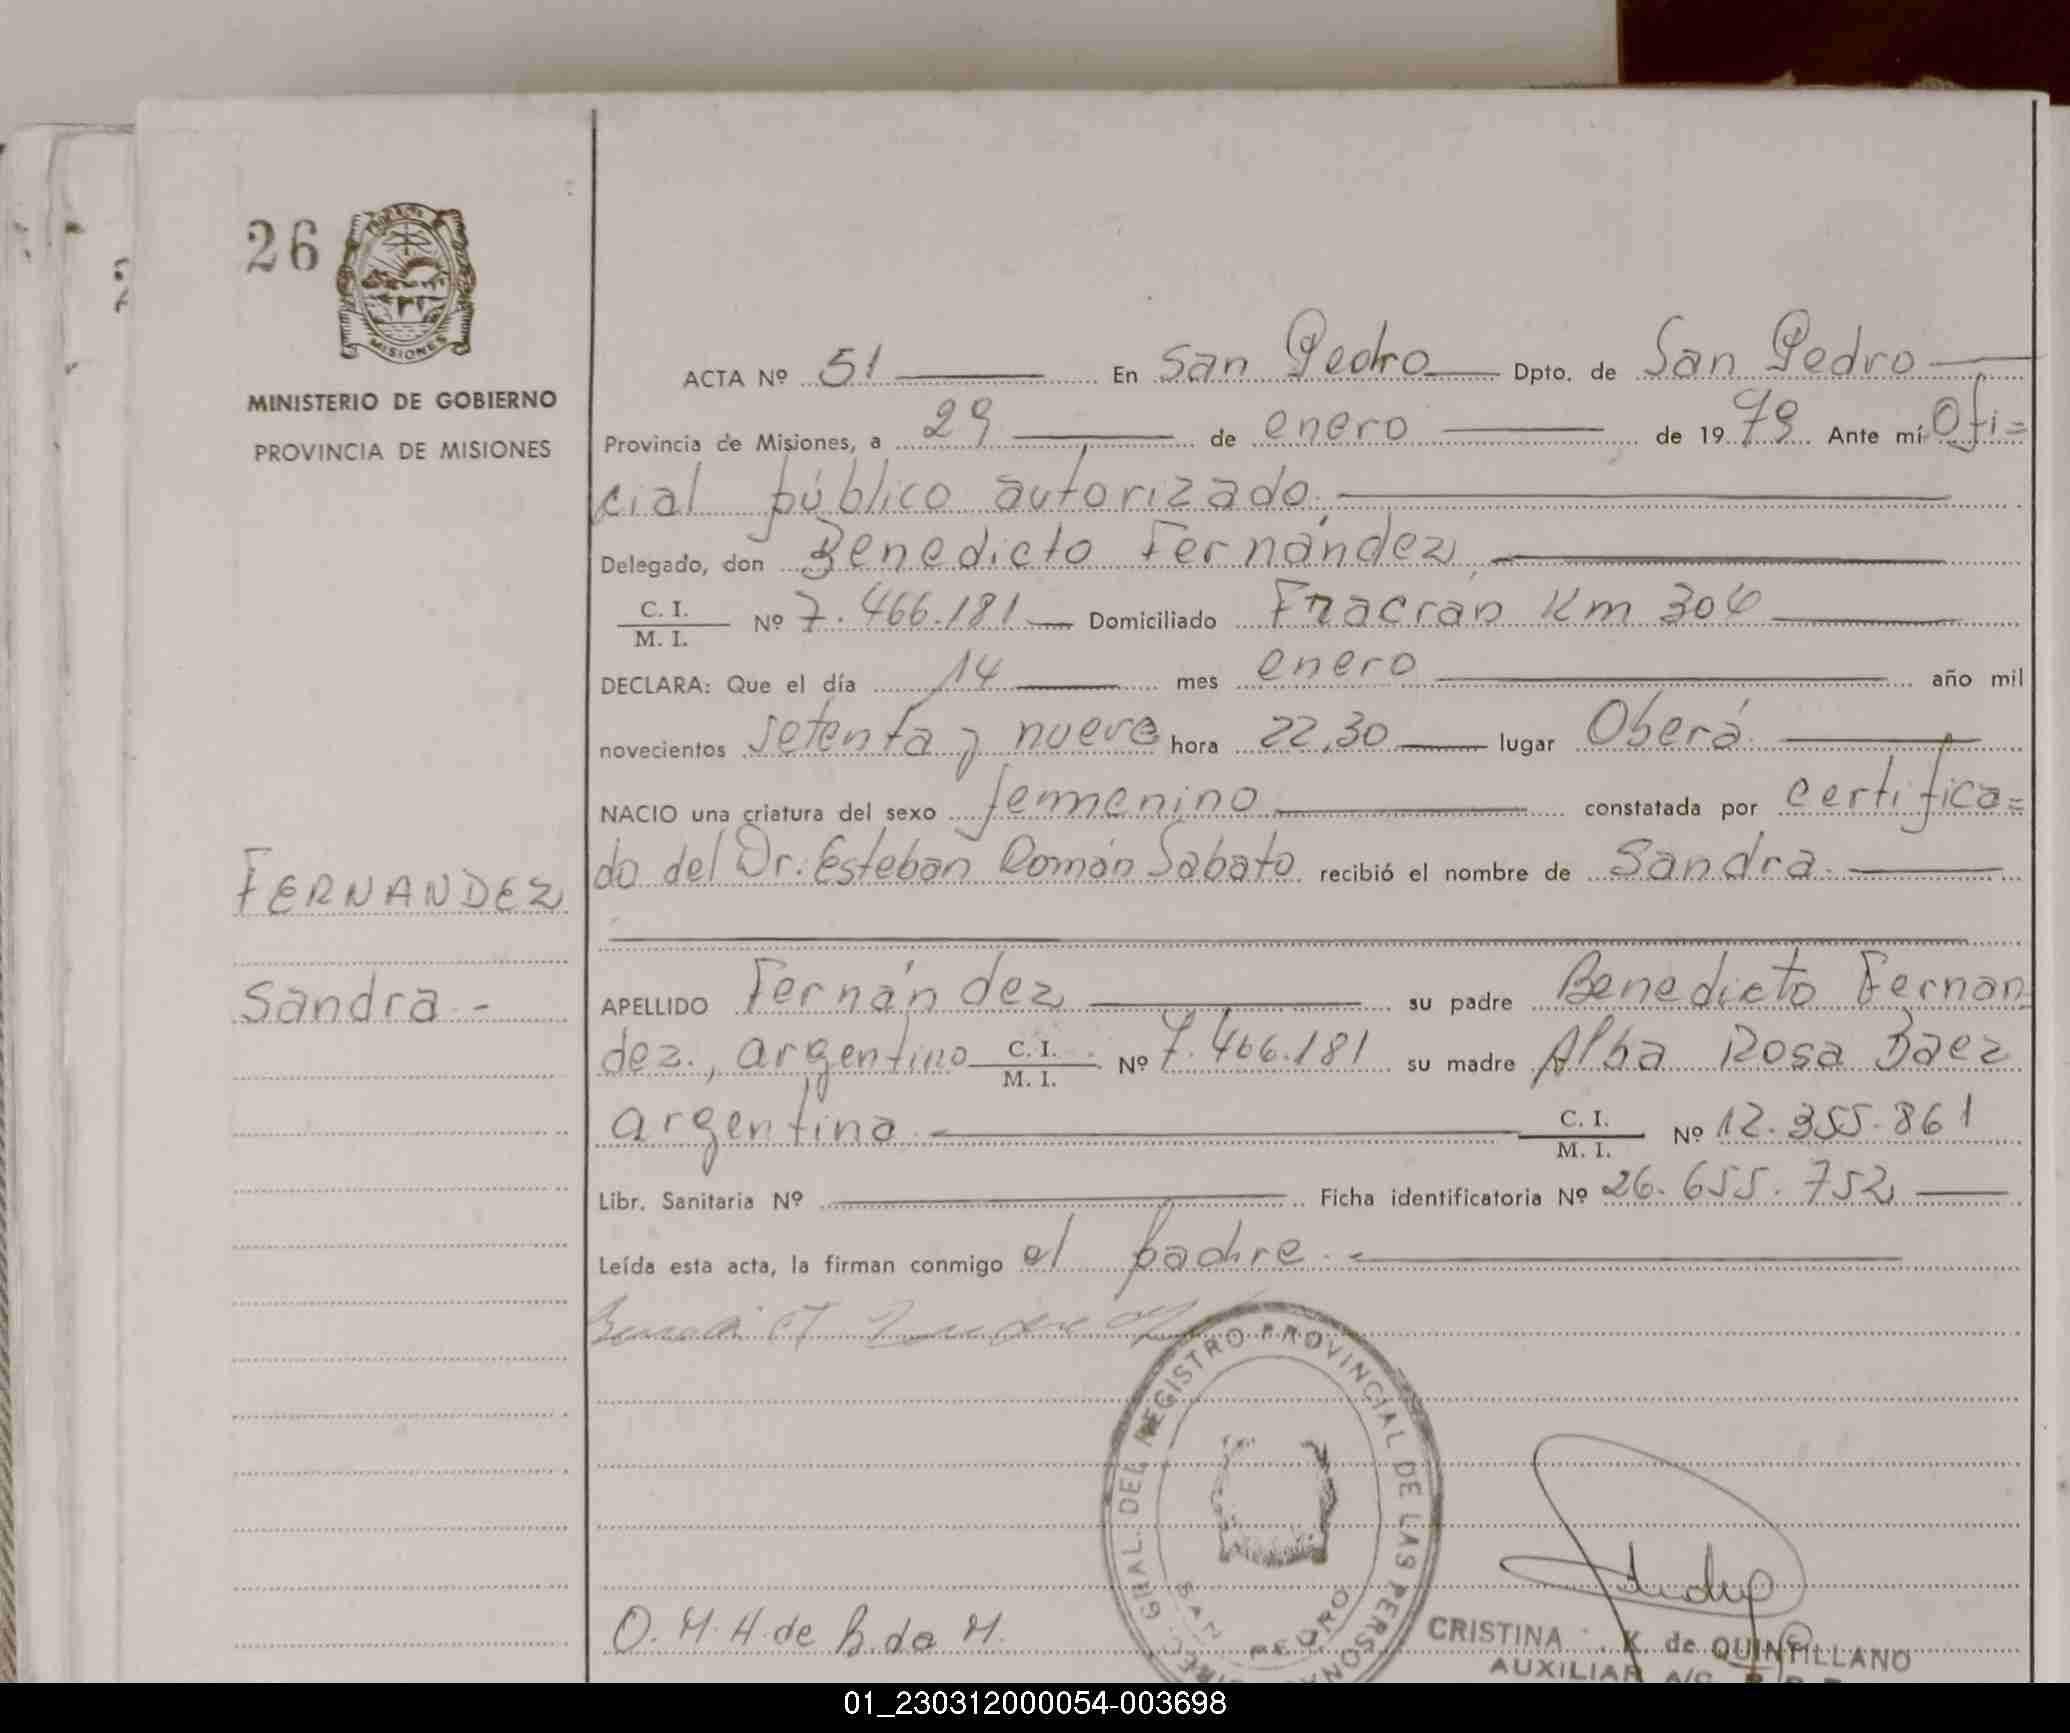 26
MISIONES
MINISTERIO DE GOBIERNO
PROVINCIA DE MISIONES
FERNANDEZ
Sandra.-
ACTA Nº 51 En San Pedro Dpto. de San Pedro
Provincia de Misiones, a 29 de enero de 1979 Ante mí Ofi=
cial público autorizado,
Delegado, don Benedicto Fernández,
C. I. / M. I. Nº 7.466.181 Domiciliado Fracrán Km 306
DECLARA: Que el día 14 mes enero año mil
novecientos setenta y nueve hora 22,30 lugar Oberá
NACIO una criatura del sexo femenino constatada por certifica=
do del Dr. Esteban Román Sabato recibió el nombre de Sandra.
APELLIDO Fernández su padre Benedicto Fernan
dez., argentino C. I. / M. I. Nº 7.466.181 su madre Alba Rosa Baez
argentina C. I. / M. I. Nº 12.355.861
Libr. Sanitaria Nº Ficha identificatoria Nº 26.655.752
Leída esta acta, la firman conmigo el padre.-
GRAL. DEL REGISTRO PROVINCIAL DE LAS PERSONAS
SAN PEDRO
O. M. H. de B. da M.
CRISTINA K. de QUINTILLANO
AUXILIAR A/C
01_230312000054-003698